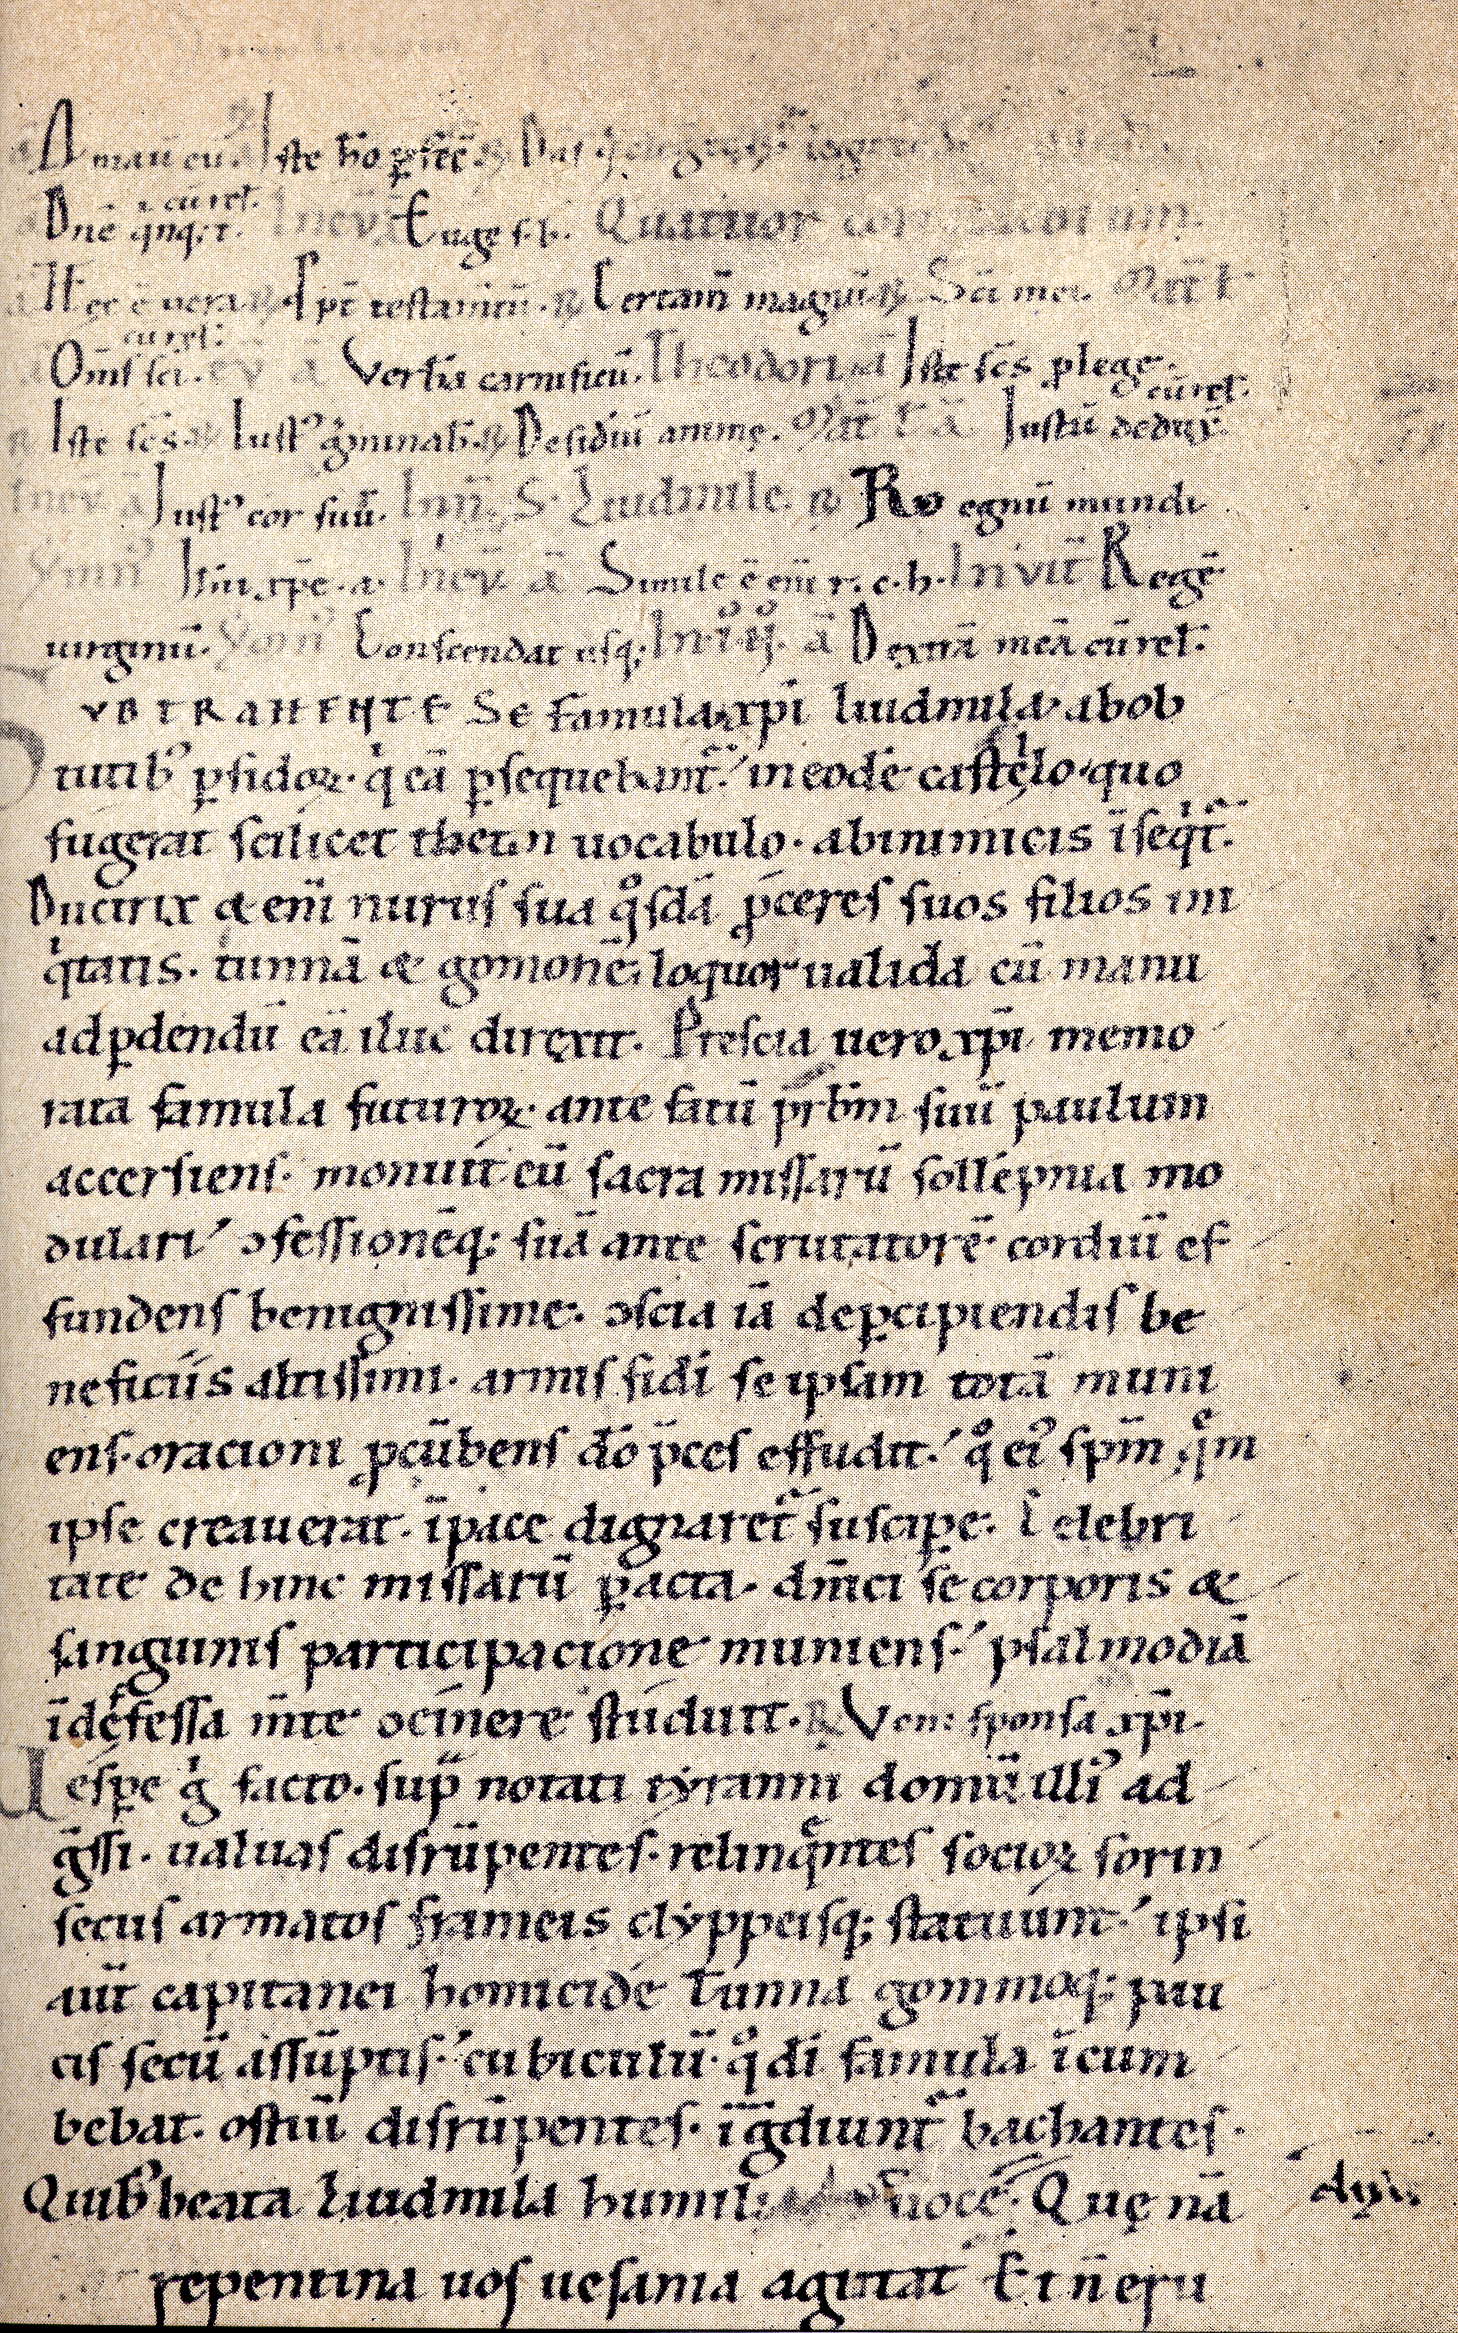 A mauı̄ eū. Iste hō ꝑfec̄.
Dn̄e q̇nq;t. cū rel̄. In ev̄ ā Euge s. b. Quatuor coronatorum.
Hęc ē uera. ꝶ Ip̄i testam̄tū. ꝶ Certam̄ magnū. ꝶ Sc̄i mei. Mat̄ l
Om̄s sc̄i. cū rel̄. ev̄ ā Vertīa carnificū. Theodori. ā Iste sc̄s ꝓ lege.
ꝶ Iste sc̄s ꝶ Iustꝰ gͥminab̄. ꝶ Desidiū animę. Mat̄ l ā Iustū dedux̄. cū rel̄.
In ev̄. ā Iustꝰ cor suū. In n̄. S. Liudmile. ꝶ Regnū mundi
Ymnꝰ Ihū xp̄e. a. In ev̄. ā Simile ē em̄ r. c. h. Invit̄ Regē
uirginū. Ymnꝰ Conscendat usq; In ā Dextrā meā cū rel̄.
SVBTRAHENTE se famula xp̄i liudmila ab ob
tutibꝰ ꝑfidoꝝ. qͥ eā ꝑsequebant᷑ in eodē castello quo
fugerat scilicet thetin uocabulo. ab inimicis īseqͥt᷑.
Ductrix & em̄ nurus sua qͦsdā ꝓceres suos filios ini
qͥtatis. tunnā & gomonē; loquor ualida cū manu
ad ꝑdendū eā illuc diręxit. Prescia uero xp̄i memo
rata famula futuroꝝ. ante fatū pr̄bm̄ suū paulum
accersiens. monuit eū sacra missarū sollēpnia mo
dulari ꝯfessionēq; suā ante scrutatorē cordiū ef
fundens benignissime. ꝯscia iā de ꝑcipiendis be
neficiis altissimi. armis fidi se ipsam totā muni
ens. oracioni ꝓcūbens dō p̄ces effudit. qͦ eiꝰ sp̄m qͤm
ipse creauerat. ī pace dignaret᷑ suscipe. Celebri
tate de hinc missarū ꝑacta. dn̄ici se corporis &
sanguinis participacione muniens. psalmodiā
īdefessa m̄te ꝯcinere studuit. ꝶ Veni sponsa xp̄i.
Vespe gͥ facto. sup̄ notati tyranni domū illiꝰ ad
g̅ssi. ualuas disrūpentes. relinqͣntes socioꝝ forin
secus armatos frameis clyppeisq; statuunt. ipsi
aut̄ capitanei homicide Tunna gommoq; pau
cis secū assūptis. cubiculū. qͦ di famula īcum
bebat. ostiū disrūpentes. īg̅diunt᷑ bachantes.
Quibꝰ beata Liudmila humili uoce. Quę nā
repentina uos uesania agitat Et n̄ eru